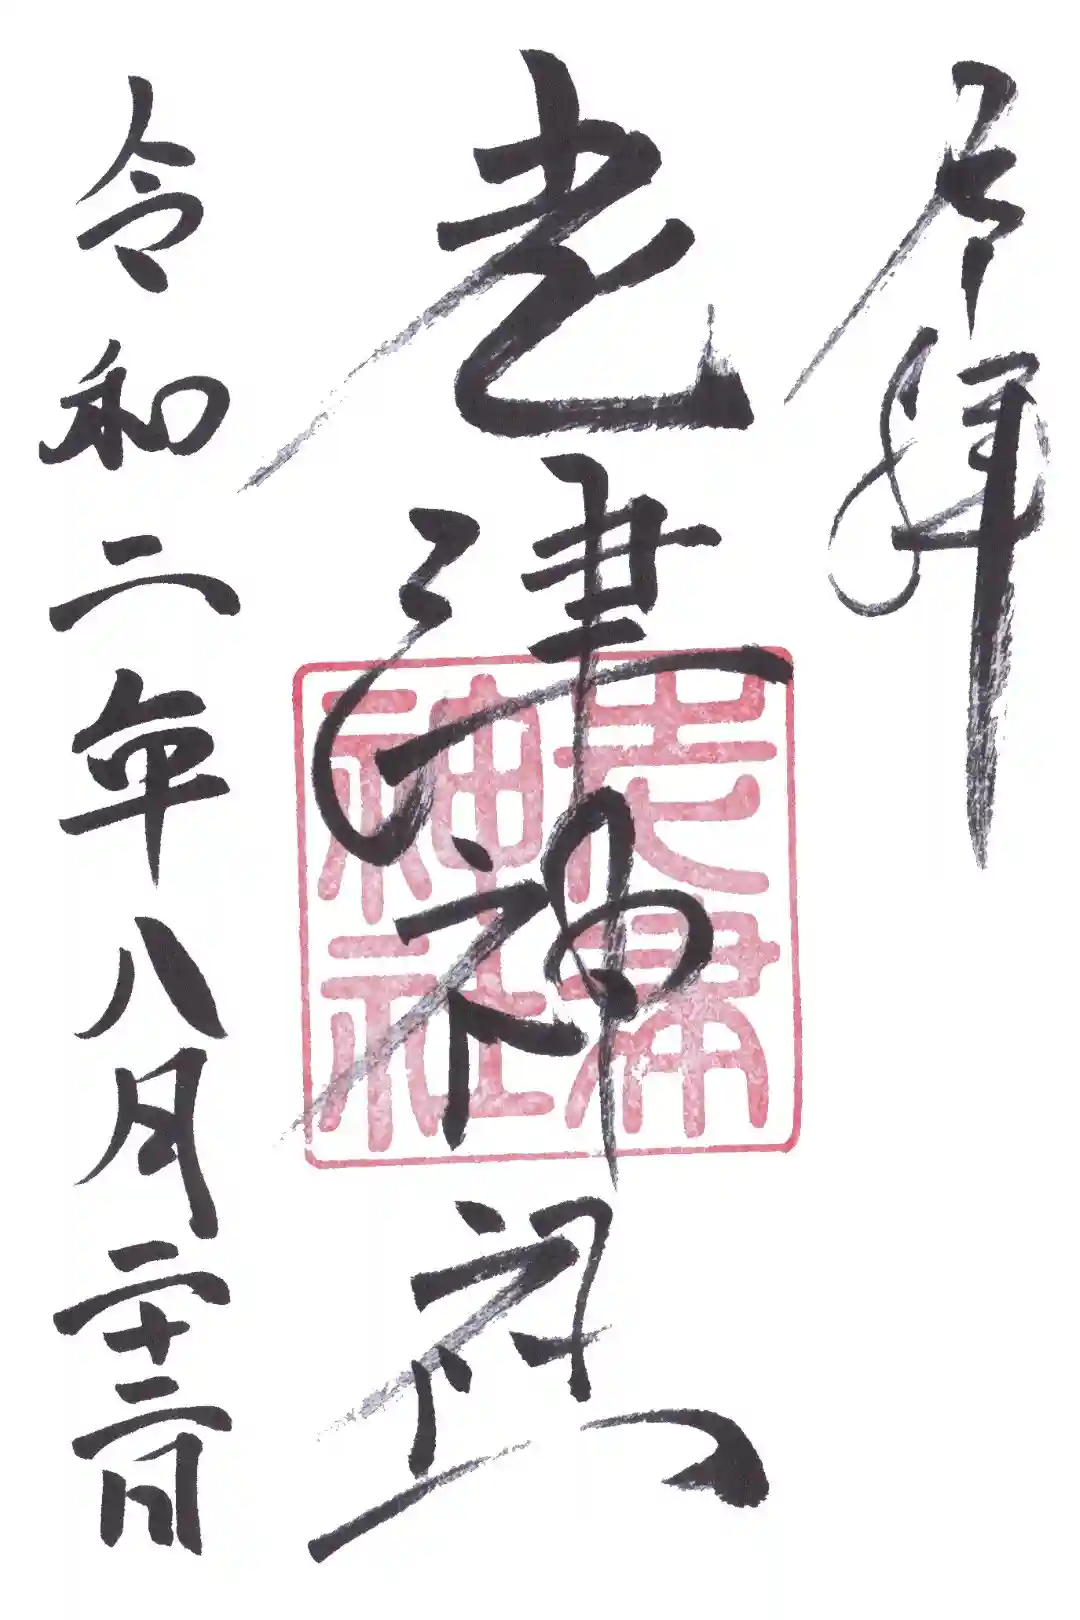 奉拝
老津神社
老津神社
令和二年八月二十二日